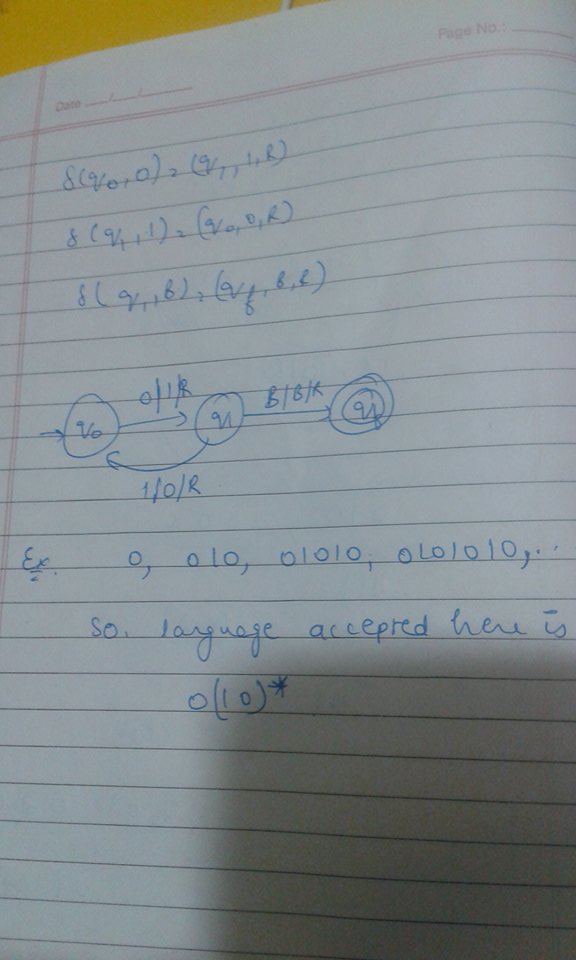 Page No.:
Date
δ(q0, 0) = (q1, 1, R)
δ(q1, 1) = (q0, 0, R)
δ(q1, B) = (qf, B, R)
0/1/R
B/B/R
q0
q1
qf
1/0/R
Ex. 0, 010, 01010, 0101010, ..
So, language accepted here is
0(10)*